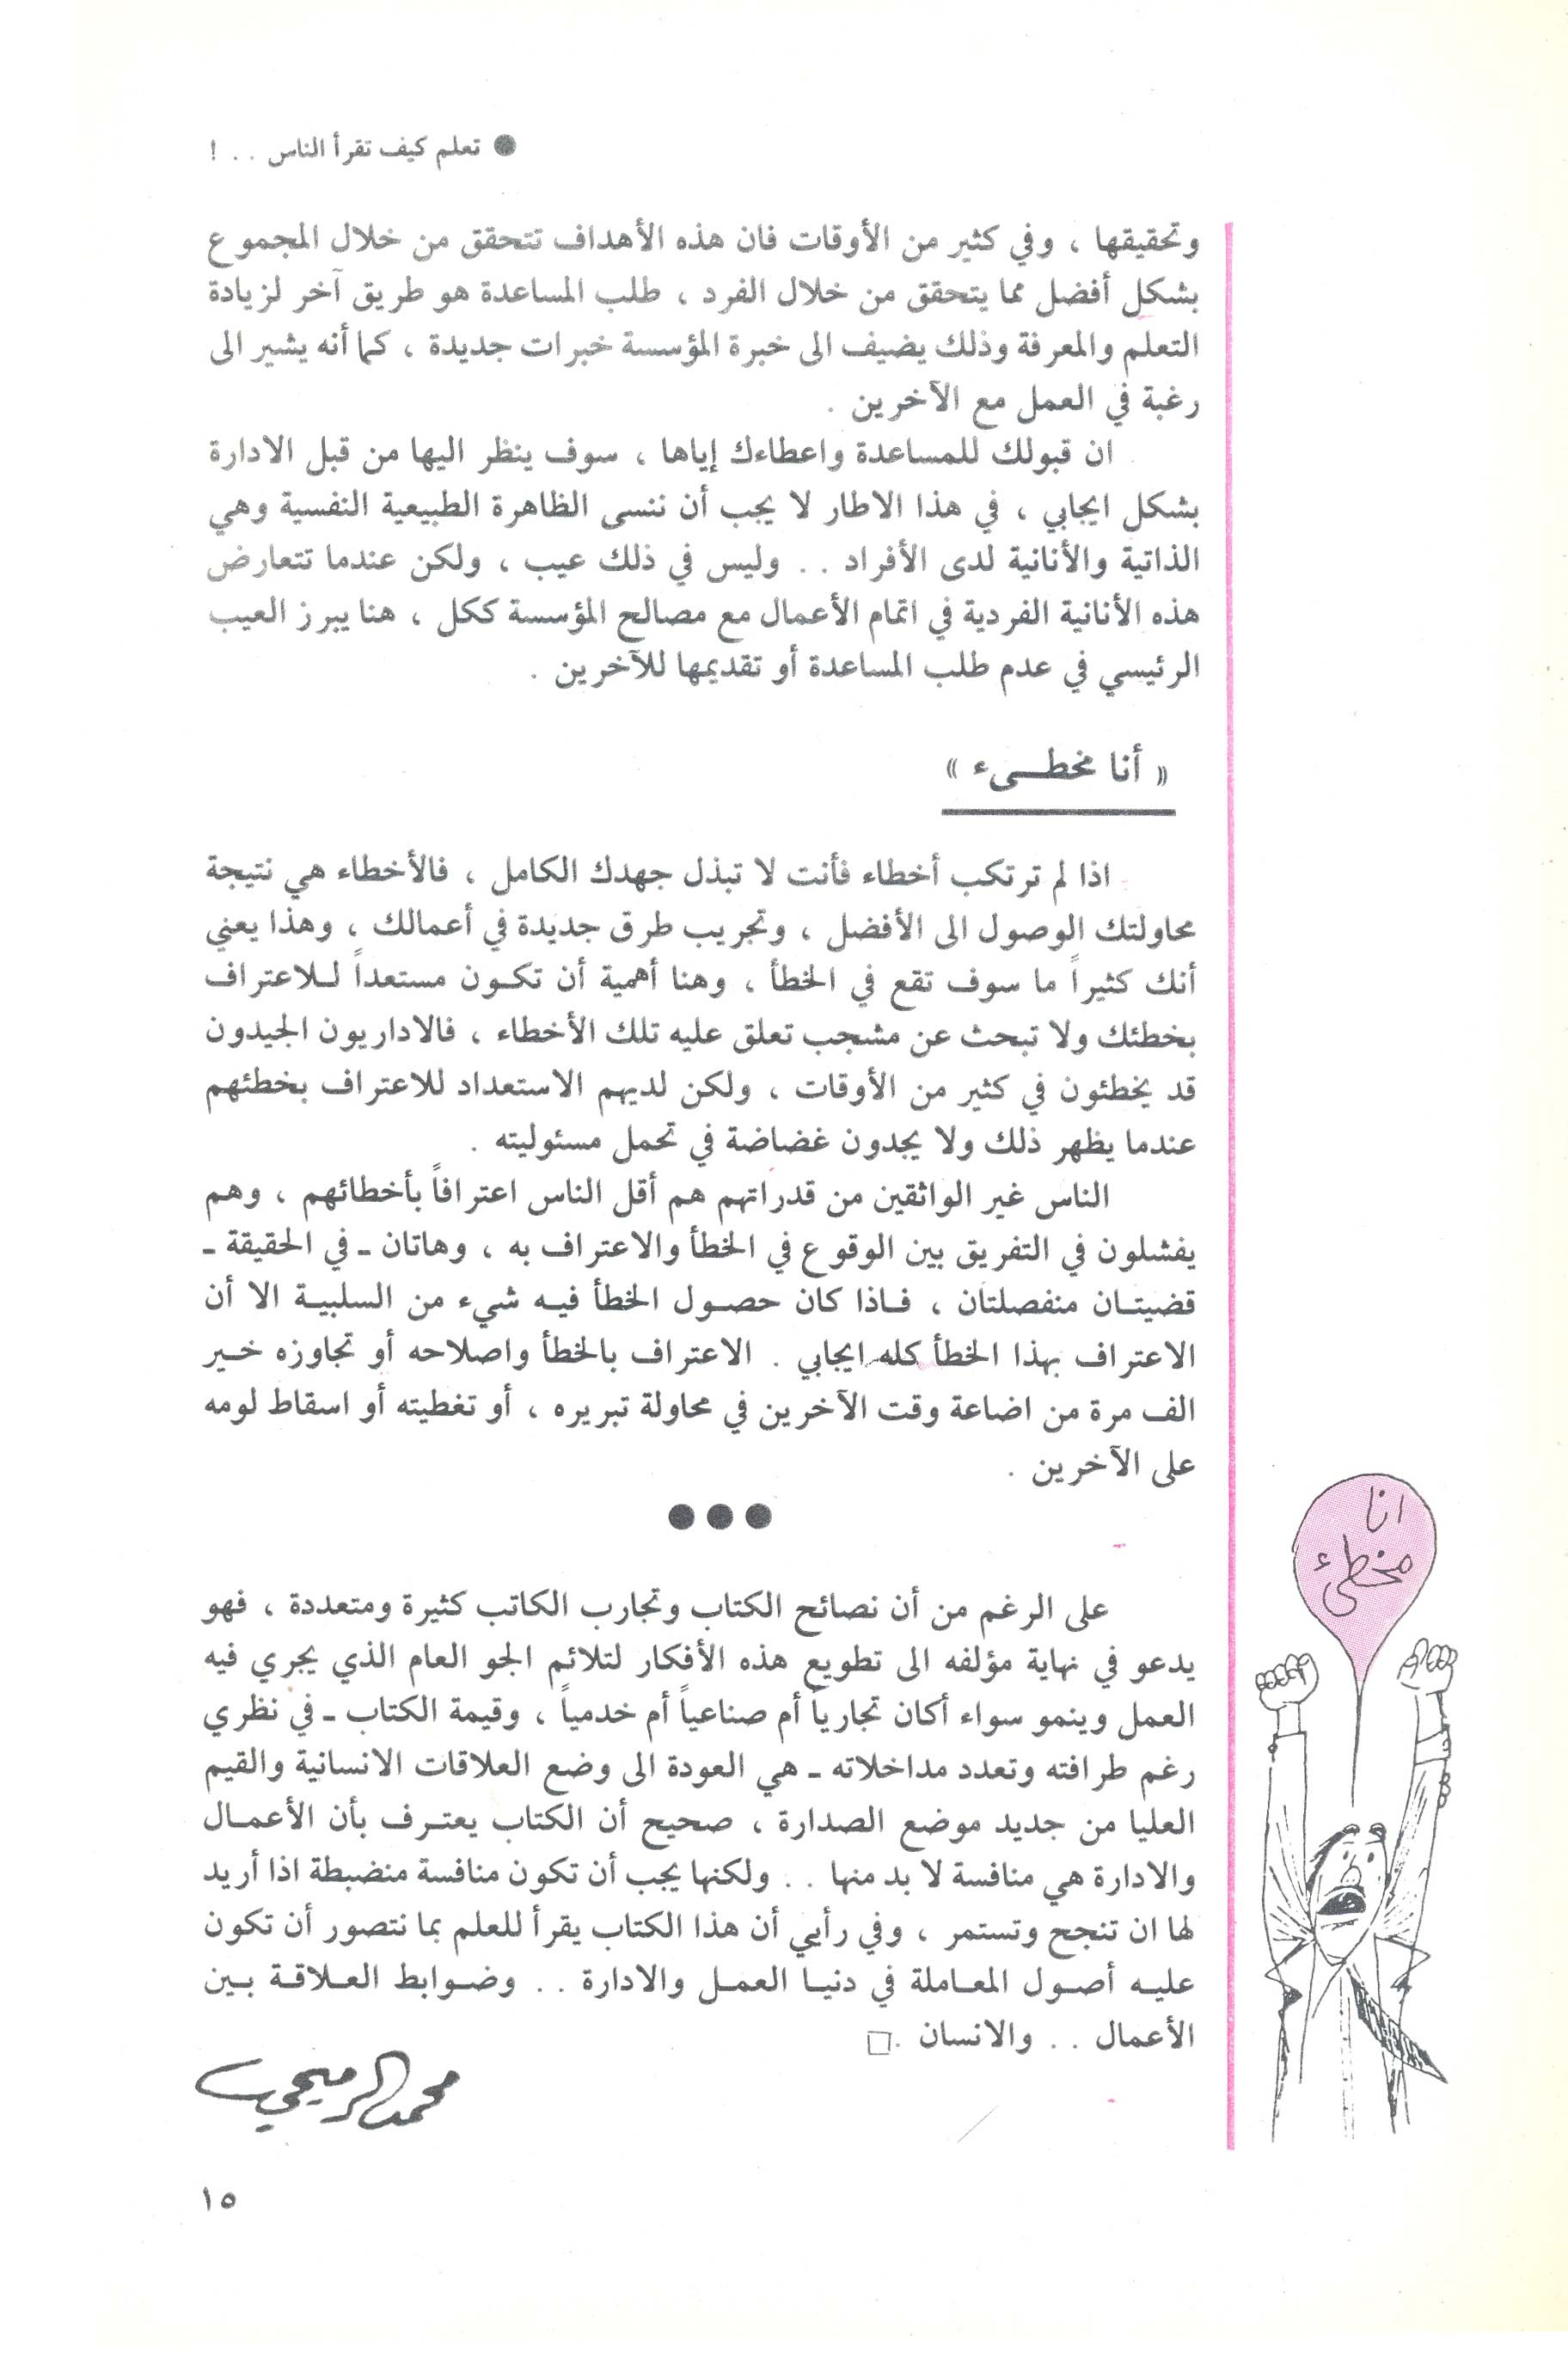 ● تعلم كيف تقرأ الناس . . !
وتحقيقها ، وفي كثير من الأوقات فان هذه الأهداف تتحقق من خلال المجموع
بشكل أفضل مما يتحقق من خلال الفرد ، طلب المساعدة هو طريق آخر لزيادة
التعلم والمعرفة وذلك يضيف الى خبرة المؤسسة خبرات جديدة ، كما أنه يشير الى
رغبة في العمل مع الآخرين .
ان قبولك للمساعدة واعطاءك إياها ، سوف ينظر اليها من قبل الادارة
بشكل ايجابي ، في هذا الاطار لا يجب أن ننسى الظاهرة الطبيعية النفسية وهي
الذاتية والأنانية لدى الأفراد . . وليس في ذلك عيب ، ولكن عندما تتعارض
هذه الأنانية الفردية في اتمام الأعمال مع مصالح المؤسسة ككل ، هنا يبرز العيب
الرئيسي في عدم طلب المساعدة أو تقديمها للآخرين .
« أنا مخطــىء »
اذا لم ترتكب أخطاء فأنت لا تبذل جهدك الكامل ، فالأخطاء هي نتيجة
محاولتك الوصول الى الأفضل ، وتجريب طرق جديدة في أعمالك ، وهذا يعني
أنك كثيراً ما سوف تقع في الخطأ ، وهنا أهمية أن تكـون مستعداً لـلاعتراف
بخطئك ولا تبحث عن مشجب تعلق عليه تلك الأخطاء ، فالاداريون الجيدون
قد يخطئون في كثير من الأوقات ، ولكن لديهم الاستعداد للاعتراف بخطئهم
عندما يظهر ذلك ولا يجدون غضاضة في تحمل مسئوليته .
الناس غير الواثقين من قدراتهم هم أقل الناس اعترافاً بأخطائهم ، وهم
يفشلون في التفريق بين الوقوع في الخطأ والاعتراف به ، وهاتان ـ في الحقيقة ـ
قضيتـان منفصلتان ، فـاذا كان حصـول الخطأ فيـه شيء من السلبيـة الا أن
الاعتراف بهذا الخطأ كله ايجابي . الاعتراف بالخطأ واصلاحه أو تجاوزه خـير
الف مرة من اضاعة وقت الآخرين في محاولة تبريره ، أو تغطيته أو اسقاط لومه
على الآخرين .
●●●
على الرغم من أن نصائح الكتاب وتجارب الكاتب كثيرة ومتعددة ، فهو
يدعو في نهاية مؤلفه الى تطويع هذه الأفكار لتلائم الجو العام الذي يجري فيه
العمل وينمو سواء أكان تجارياً أم صناعياً أم خدمياً ، وقيمة الكتاب ـ في نظري
رغم طرافته وتعدد مداخلاته ـ هي العودة الى وضع العلاقات الانسانية والقيم
العليا من جديد موضع الصدارة ، صحيح أن الكتاب يعتـرف بأن الأعمـال
والادارة هي منافسة لا بد منها . . ولكنها يجب أن تكون منافسة منضبطة اذا أريد
لها ان تنجح وتستمر ، وفي رأيي أن هذا الكتاب يقرأ للعلم بما نتصور أن تكون
عليـه أصـول المعـاملة في دنيـا العمـل والادارة . . وضـوابط العـلاقـة بـين
الأعمال . . والانسان . □
محمد الرميحي
انا
مخطئ
١٥